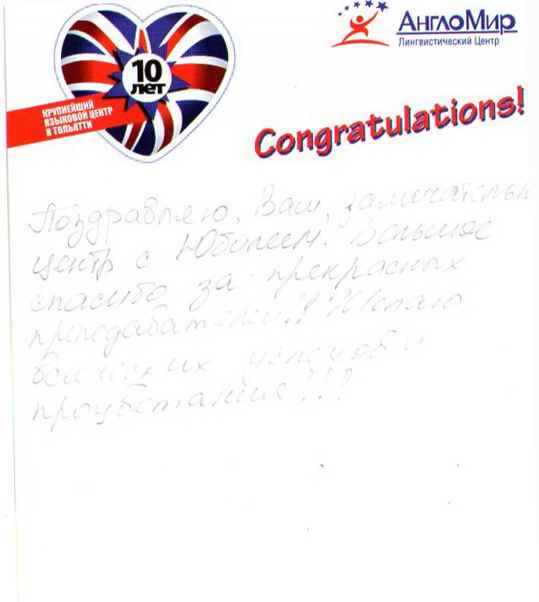 10
лет
КРУПНЕЙШИЙ
ЯЗЫКОВОЙ ЦЕНТР
В ТОЛЬЯТТИ
АнглоМир
Лингвистический Центр
Congratulations!
Поздравляю, Ваш, замечательн
центр с Юбилеем. Большое
спасибо за прекрасных
преподавателей!! Желаю
всяческих успехов и
процветания!!!